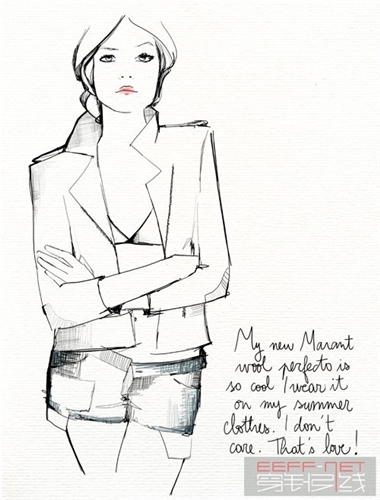 My new Marant
wool perfecto is
so cool I wear it
on my summer
clothes. I don't
care. That's love!
EEFF-NET